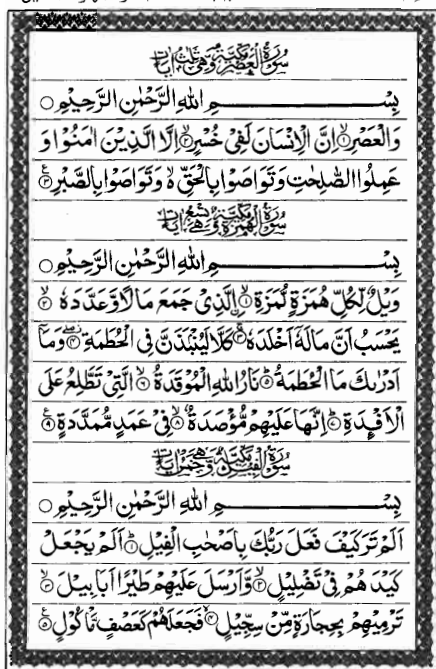 سُوْرَةُ الْعَصْرِ مَكِّيَّةٌ وَّهِیَ ثَلٰثُ اٰيَاتٍ
بِسْمِ اللهِ الرَّحْمٰنِ الرَّحِيْمِ ○
وَالْعَصْرِ ۙ﴿۱﴾ اِنَّ الْاِنْسَانَ لَفِیْ خُسْرٍ ۙ﴿۲﴾ اِلَّا الَّذِيْنَ اٰمَنُوْا وَ
عَمِلُوا الصّٰلِحٰتِ وَتَوَاصَوْا بِالْحَقِّ ۙ۬ وَتَوَاصَوْا بِالصَّبْرِ ﴿۳﴾
سُوْرَةُ الْهُمَزَةِ مَكِّيَّةٌ وَّهِیَ تِسْعُ اٰيَاتٍ
بِسْمِ اللهِ الرَّحْمٰنِ الرَّحِيْمِ ○
وَيْلٌ لِّكُلِّ هُمَزَةٍ لُّمَزَةِ ۙ﴿۱﴾ اِلَّذِیْ جَمَعَ مَالًا وَّعَدَّدَهٗ ۙ﴿۲﴾
يَحْسَبُ اَنَّ مَالَهٗۤ اَخْلَدَهٗ ۚ﴿۳﴾ كَلَّا لَيُنْۢبَذَنَّ فِی الْحُطَمَةِ ﴿۴﴾ وَمَاۤ
اَدْرٰىكَ مَا الْحُطَمَةُ ؕ﴿۵﴾ نَارُ اللهِ الْمُوْقَدَةُ ۙ﴿۶﴾ الَّتِیْ تَطَّلِعُ عَلَى
الْاَفْـِٕدَةِ ؕ﴿۷﴾ اِنَّهَا عَلَيْهِمْ مُّؤْصَدَةٌ ۙ﴿۸﴾ فِیْ عَمَدٍ مُّمَدَّدَةٍ ﴿۹﴾
سُوْرَةُ الْفِيْلِ مَكِّيَّةٌ وَّهِیَ خَمْسُ اٰيَاتٍ
بِسْمِ اللهِ الرَّحْمٰنِ الرَّحِيْمِ ○
اَلَمْ تَرَ كَيْفَ فَعَلَ رَبُّكَ بِاَصْحٰبِ الْفِيْلِ ؕ﴿۱﴾ اَلَمْ يَجْعَلْ
كَيْدَهُمْ فِیْ تَضْلِيْلٍ ۙ﴿۲﴾ وَّاَرْسَلَ عَلَيْهِمْ طَيْرًا اَبَابِيْلَ ۙ﴿۳﴾
تَرْمِيْهِمْ بِحِجَارَةٍ مِّنْ سِجِّيْلٍ ۙ﴿۴﴾ فَجَعَلَهُمْ كَعَصْفٍ مَّاْكُوْلٍ ﴿۵﴾